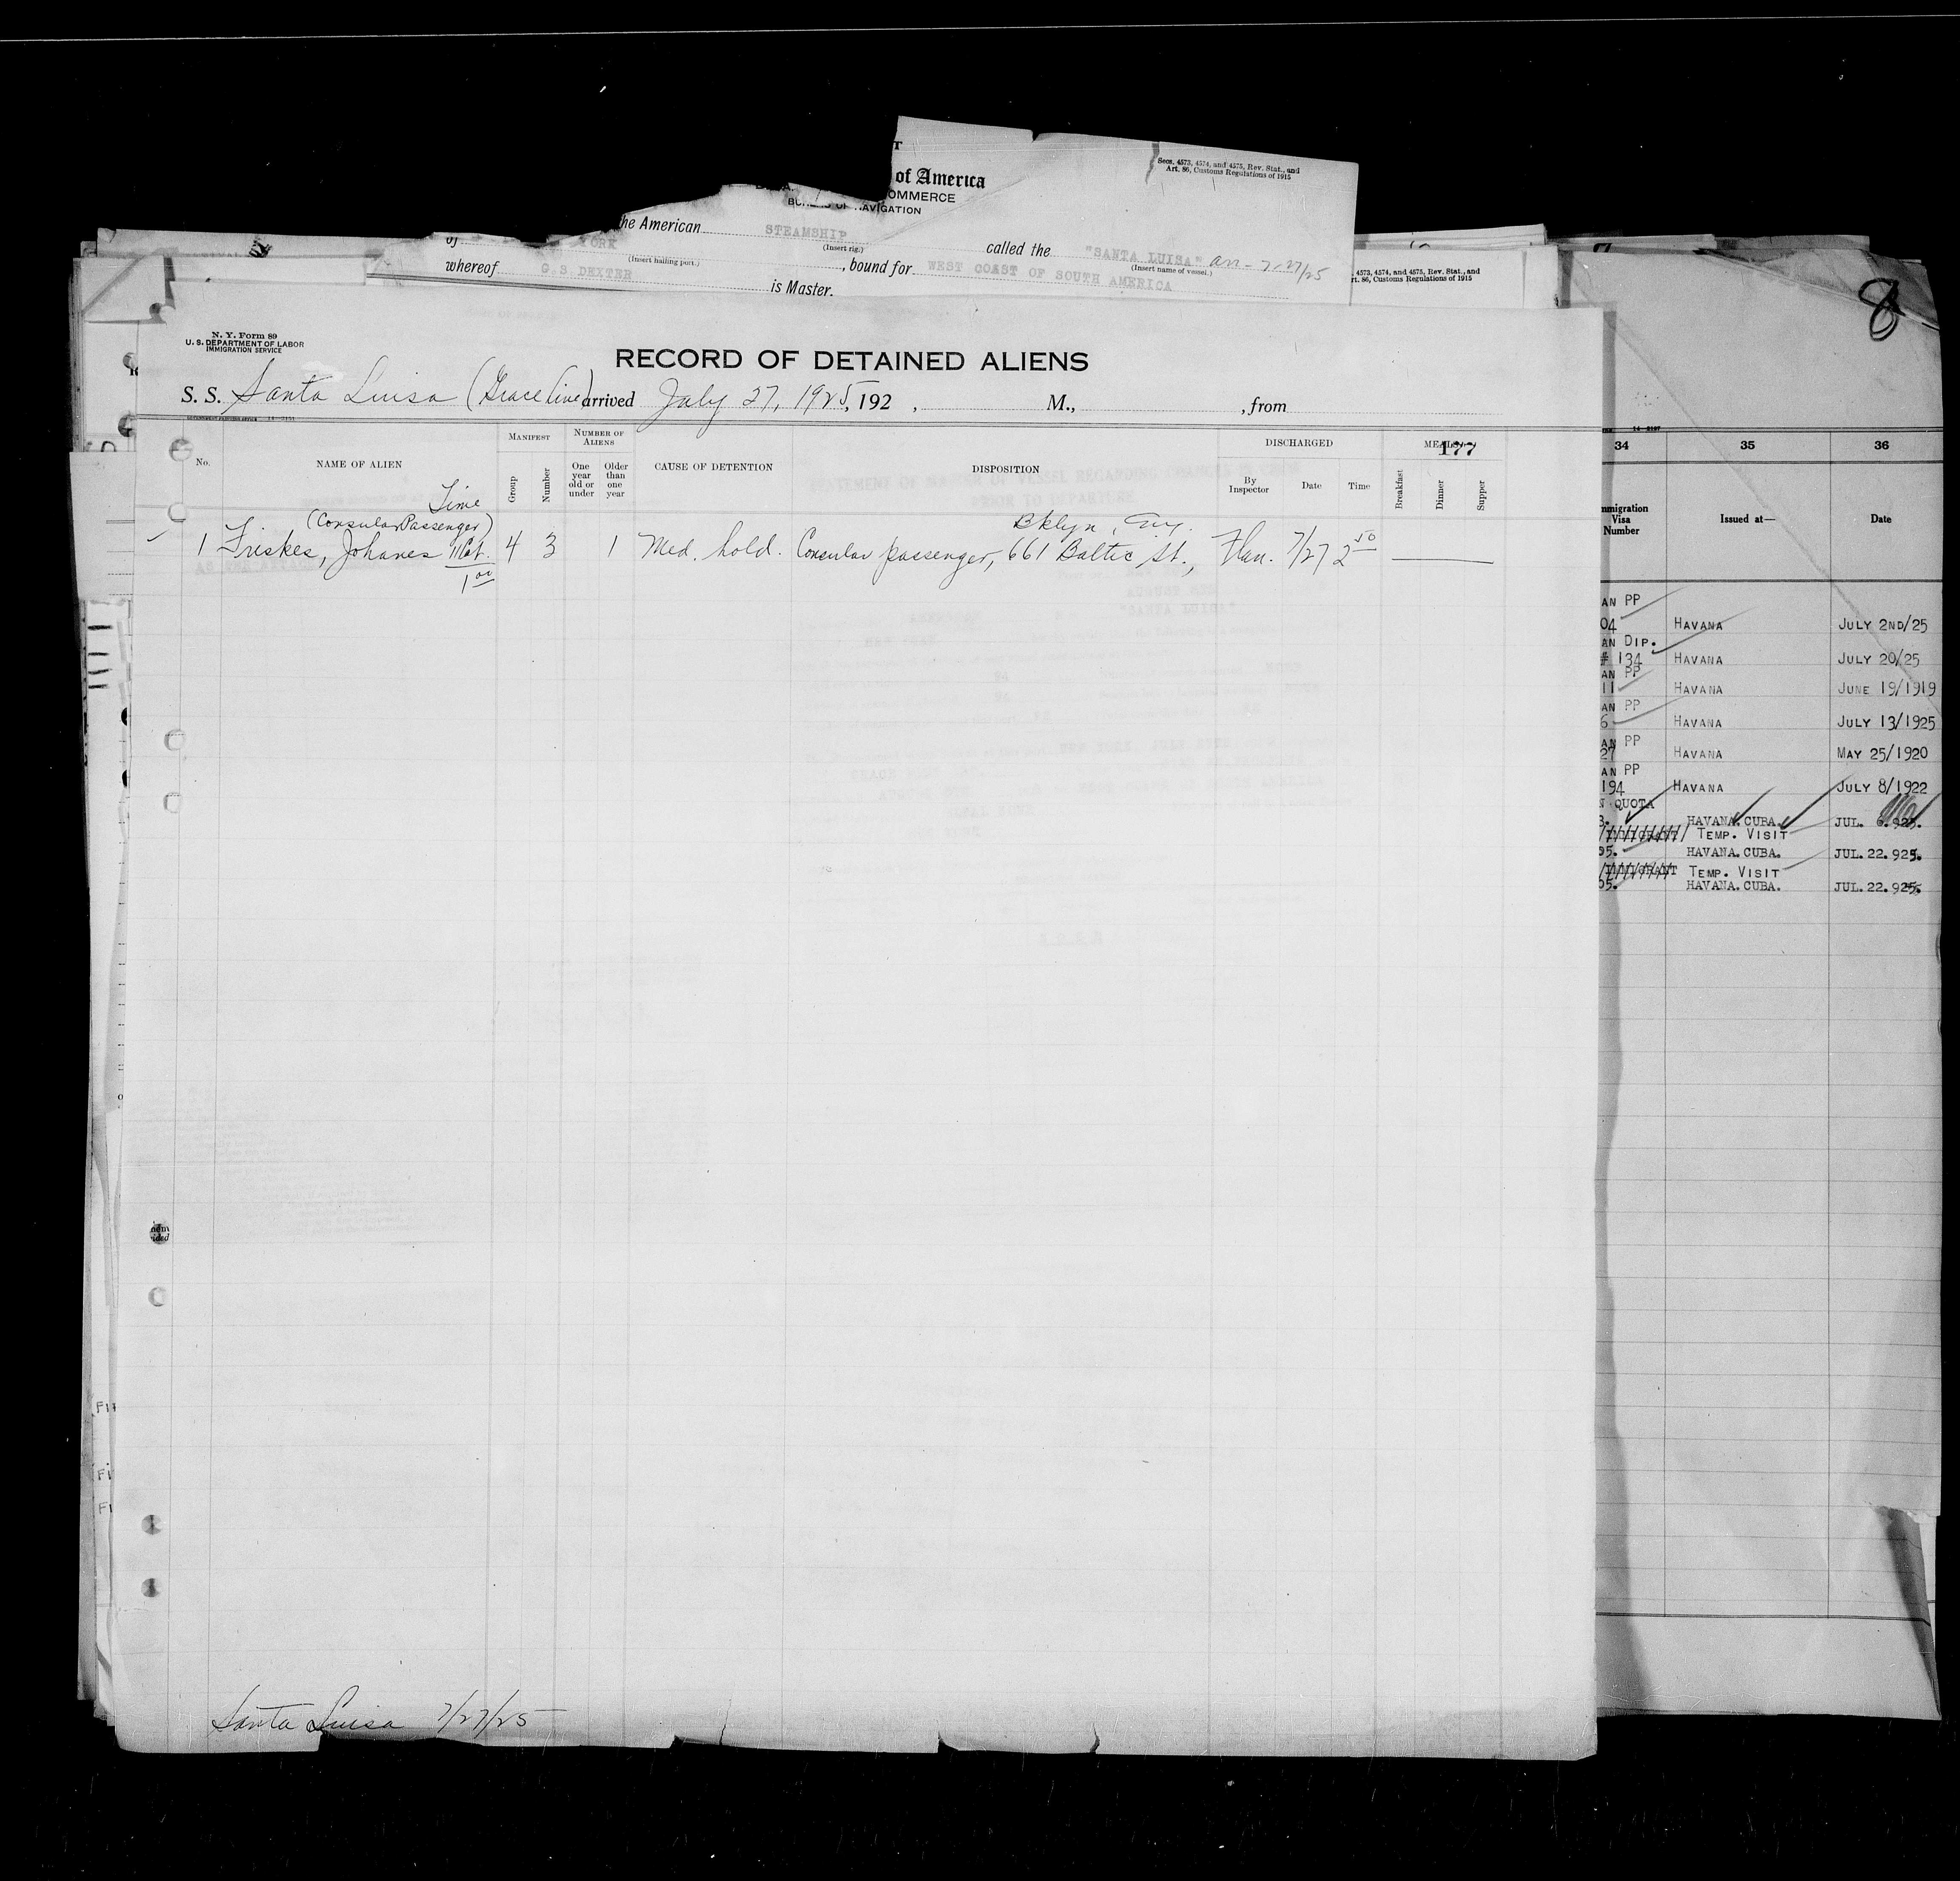 of America
Secs. 4573, 4574, and 4575, Rev. Stat., and
Art. 86, Customs Regulations of 1915
OMMERCE
AVIGATION
he American STEAMSHIP
(Insert rig.)
called the "SANTA LUISA" arr- 7/27/25
(Insert name of vessel.)
of YORK
(Insert hailing port.)
, bound for WEST COAST OF SOUTH AMERICA
whereof G S DEXTER is Master.
4573, 4574, and 4575, Rev. Stat., and
rt. 86, Customs Regulations of 1915
8
N. Y. Form 89
U. S. DEPARTMENT OF LABOR
IMMIGRATION SERVICE
RECORD OF DETAINED ALIENS
S. S. Santa Luisa (Grace Line) arrived July 27, 1925, 192 , M., , from
177
No.
NAME OF ALIEN
Time
MANIFEST
Group
Number
NUMBER OF ALIENS
One year old or under
Older than one year
CAUSE OF DETENTION
DISPOSITION
DISCHARGED
By Inspector
Date
Time
MEALS
Breakfast
Dinner
Supper
(Consular Passenger)
Bklyn, N.Y.
1 Friskes, Johanes 4 3 1 Med. hold. Consular passenger, 661 Baltic St., Flan. 7/27 2 50
1 00
Santa Luisa 7/27/25
34 35 36
mmigration Visa Number
Issued at—
Date
AN PP
04 HAVANA JULY 2ND/25
AN DIP.
# 134 HAVANA JULY 20/25
AN PP
11 HAVANA JUNE 19/1919
AN PP
6 HAVANA JULY 13/1925
AN PP
27 HAVANA MAY 25/1920
AN PP
194 HAVANA JULY 8/1922
N QUOTA
3. HAVANA. CUBA. JUL. 6.925.
TEMP. VISIT
05. HAVANA. CUBA. JUL. 22.925.
TEMP. VISIT
05. HAVANA. CUBA. JUL. 22.925.